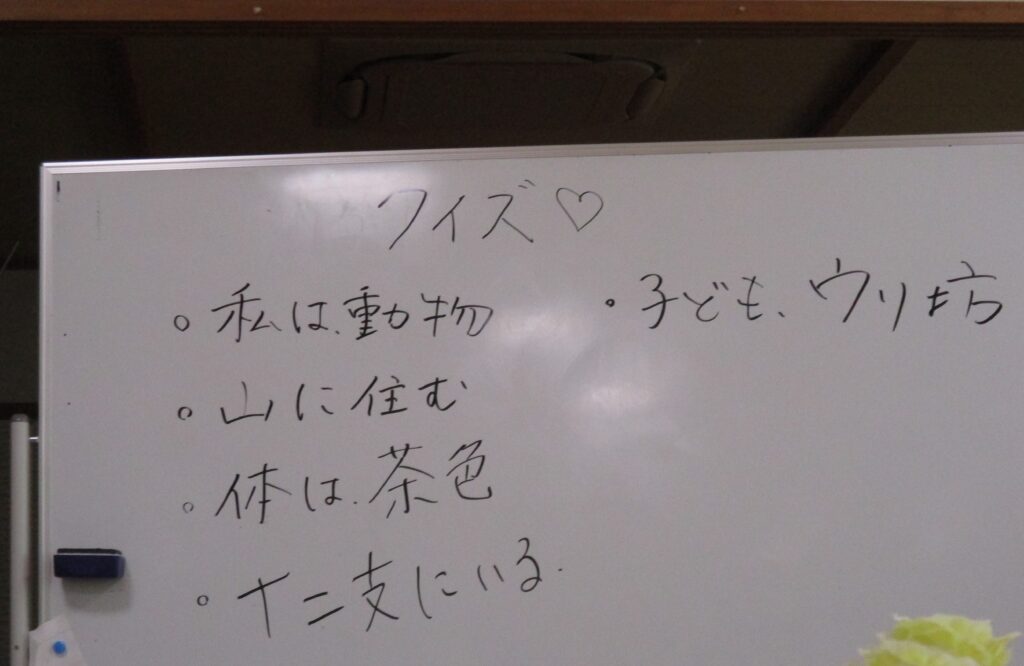 クイズ♡
。私は、動物
。山に住む
。体は、茶色
。十二支にいる.
・子ども、ウリ坊